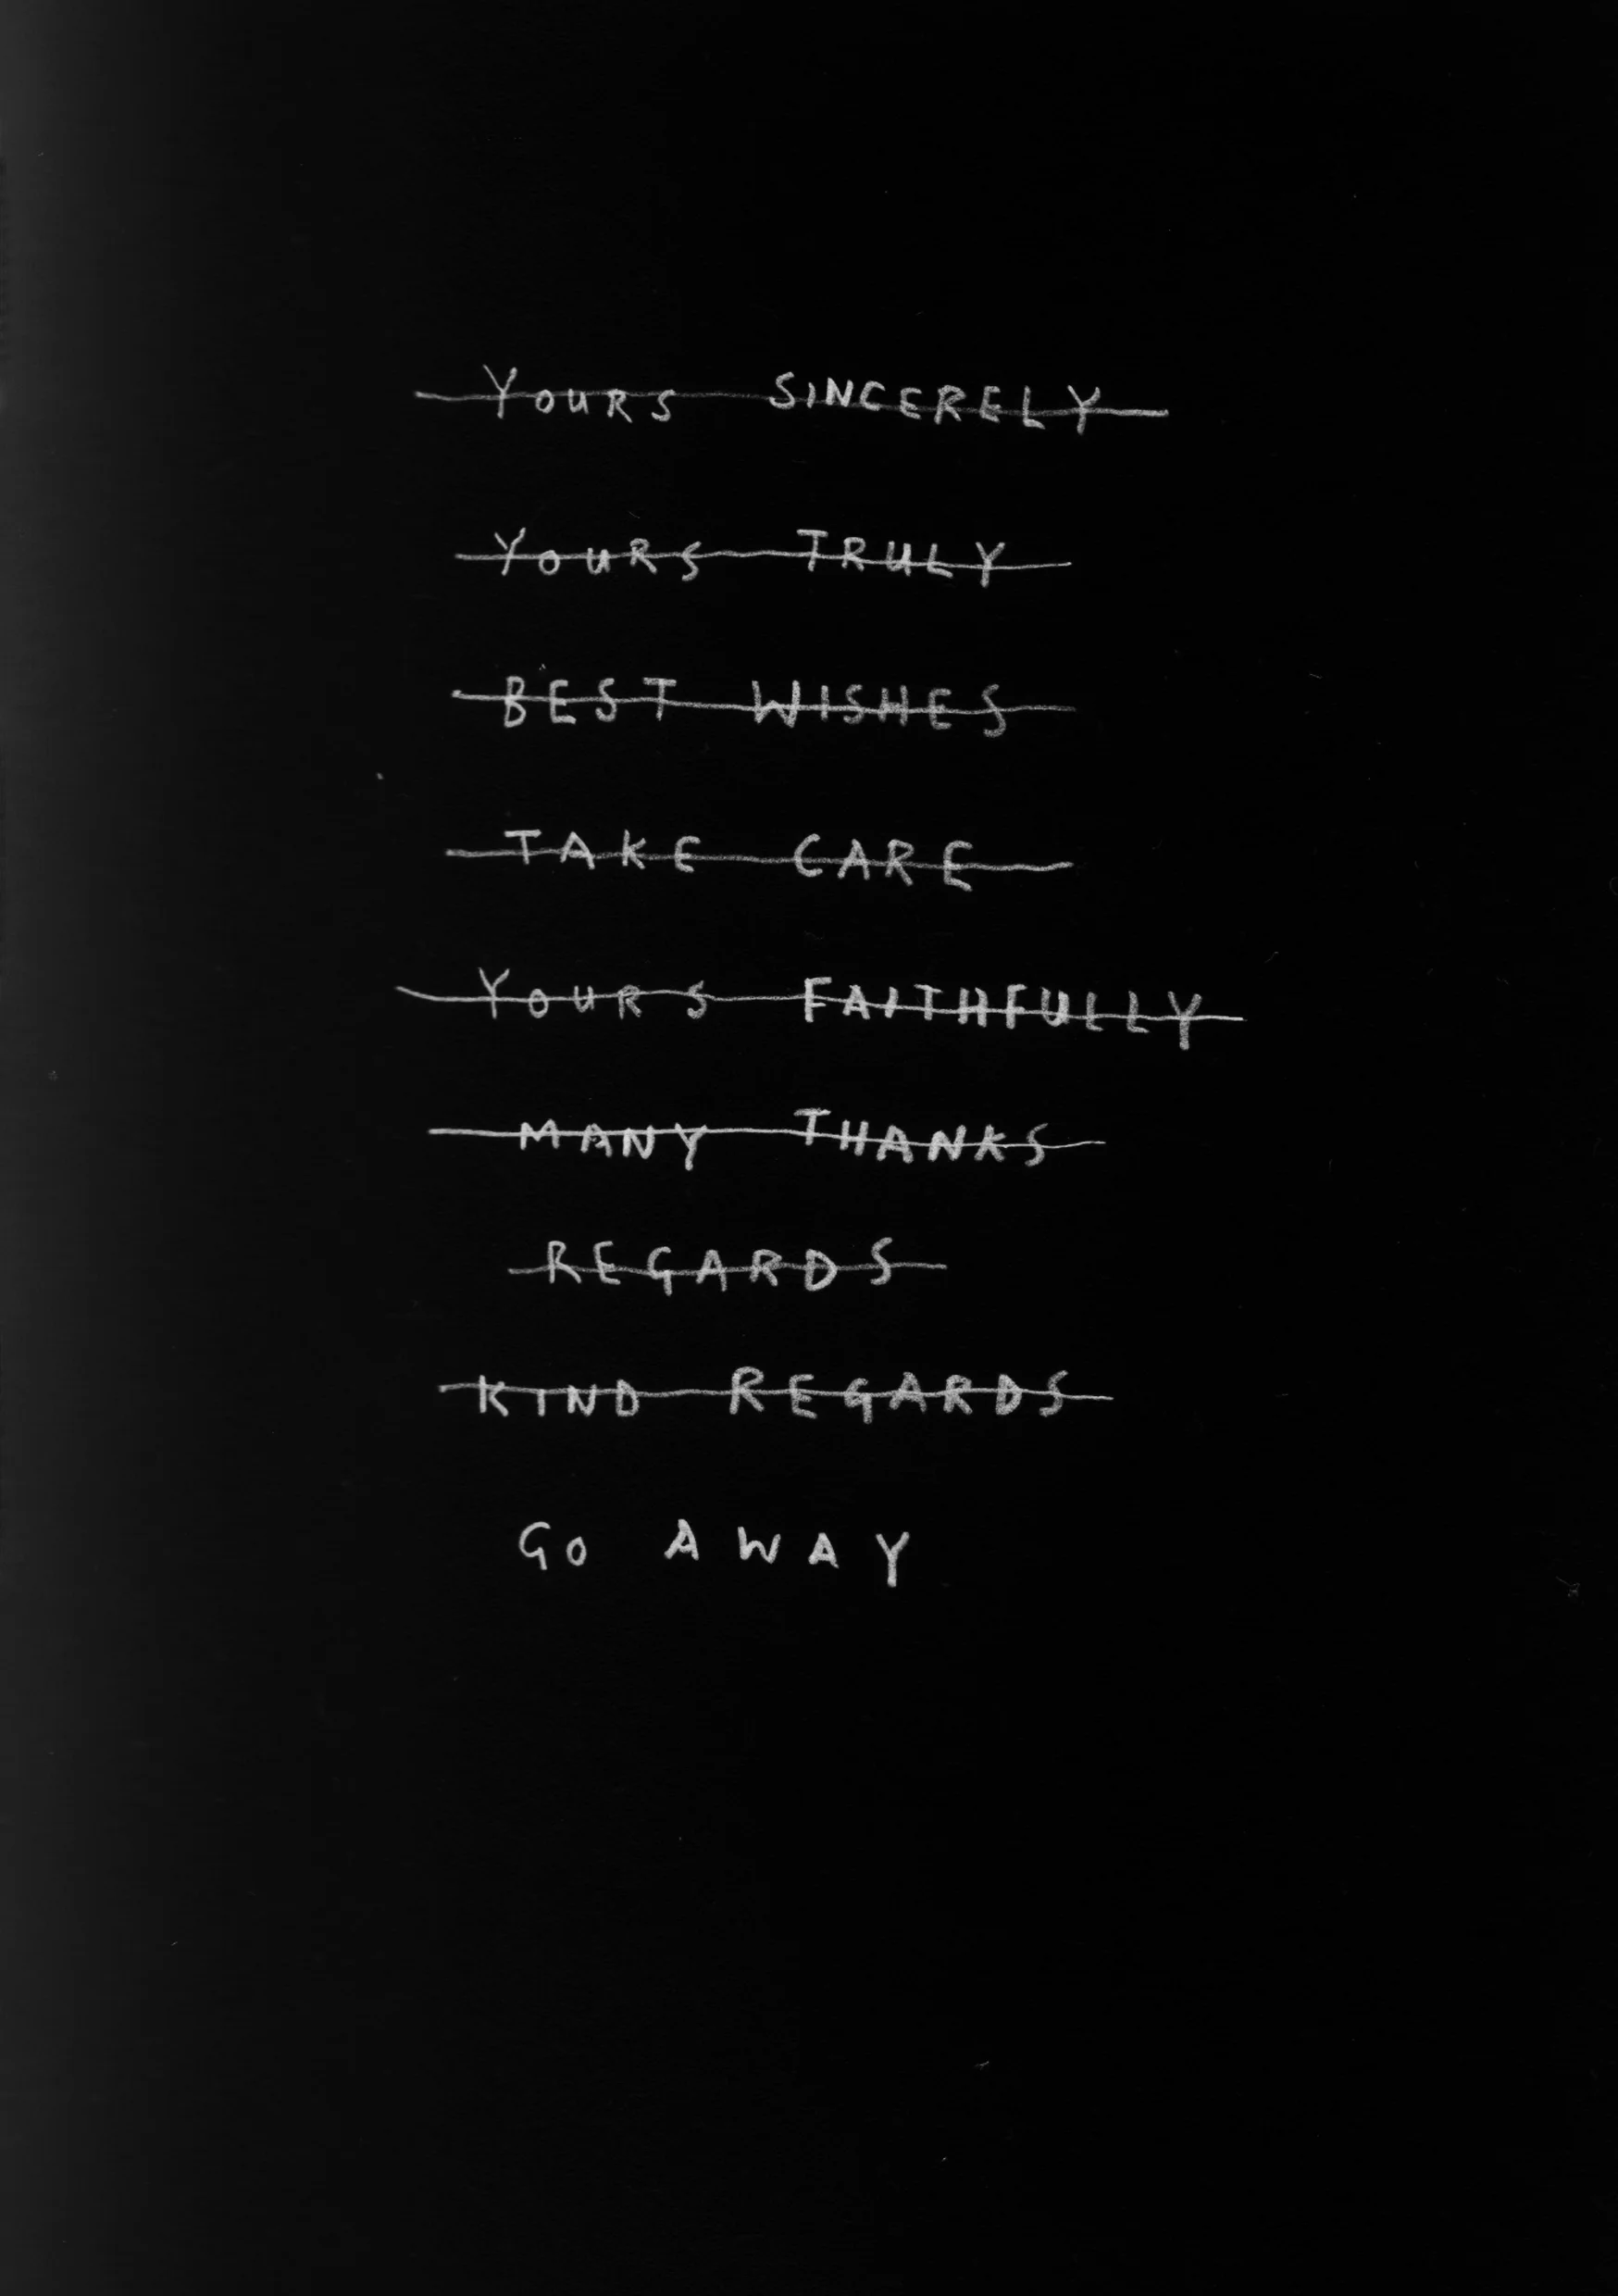 YOURS SINCERELY
YOURS TRULY
BEST WISHES
TAKE CARE
YOURS FAITHFULLY
MANY THANKS
REGARDS
KIND REGARDS
GO AWAY